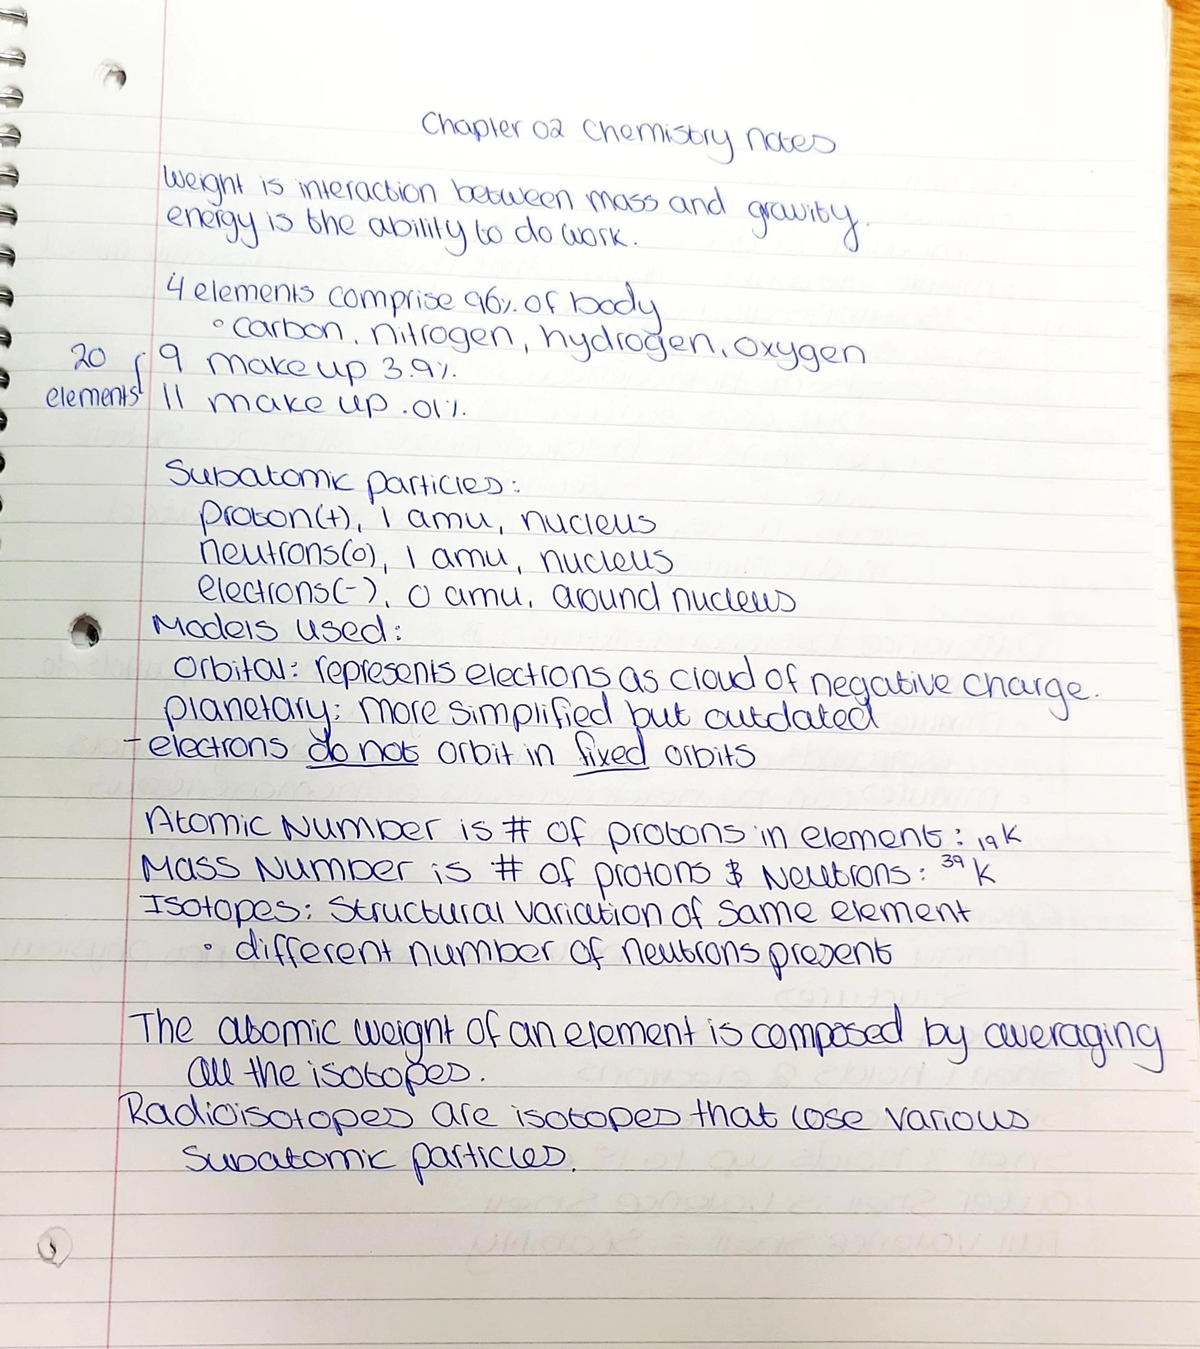 Chapter 02 Chemistry notes
Weight is interaction between mass and gravity.
energy is the ability to do work.
4 elements comprise 96% of body
◦ carbon, nitrogen, hydrogen, oxygen
20 { 9 make up 3.9%.
elements 11 make up .01%.
Subatomic particles:
proton(+), 1 amu, nucleus
neutrons(0), 1 amu, nucleus
electrons(-), 0 amu, around nucleus
Models used:
Orbital: represents electrons as cloud of negative charge.
planetary: more simplified but outdated
- electrons do not orbit in fixed orbits
Atomic Number is # of protons in element: ₁₉K
Mass Number is # of protons & Neutrons: ³⁹K
Isotopes: Structural variation of same element
◦ different number of neutrons present
The atomic weight of an element is composed by averaging
all the isotopes.
Radioisotopes are isotopes that lose various
subatomic particles.